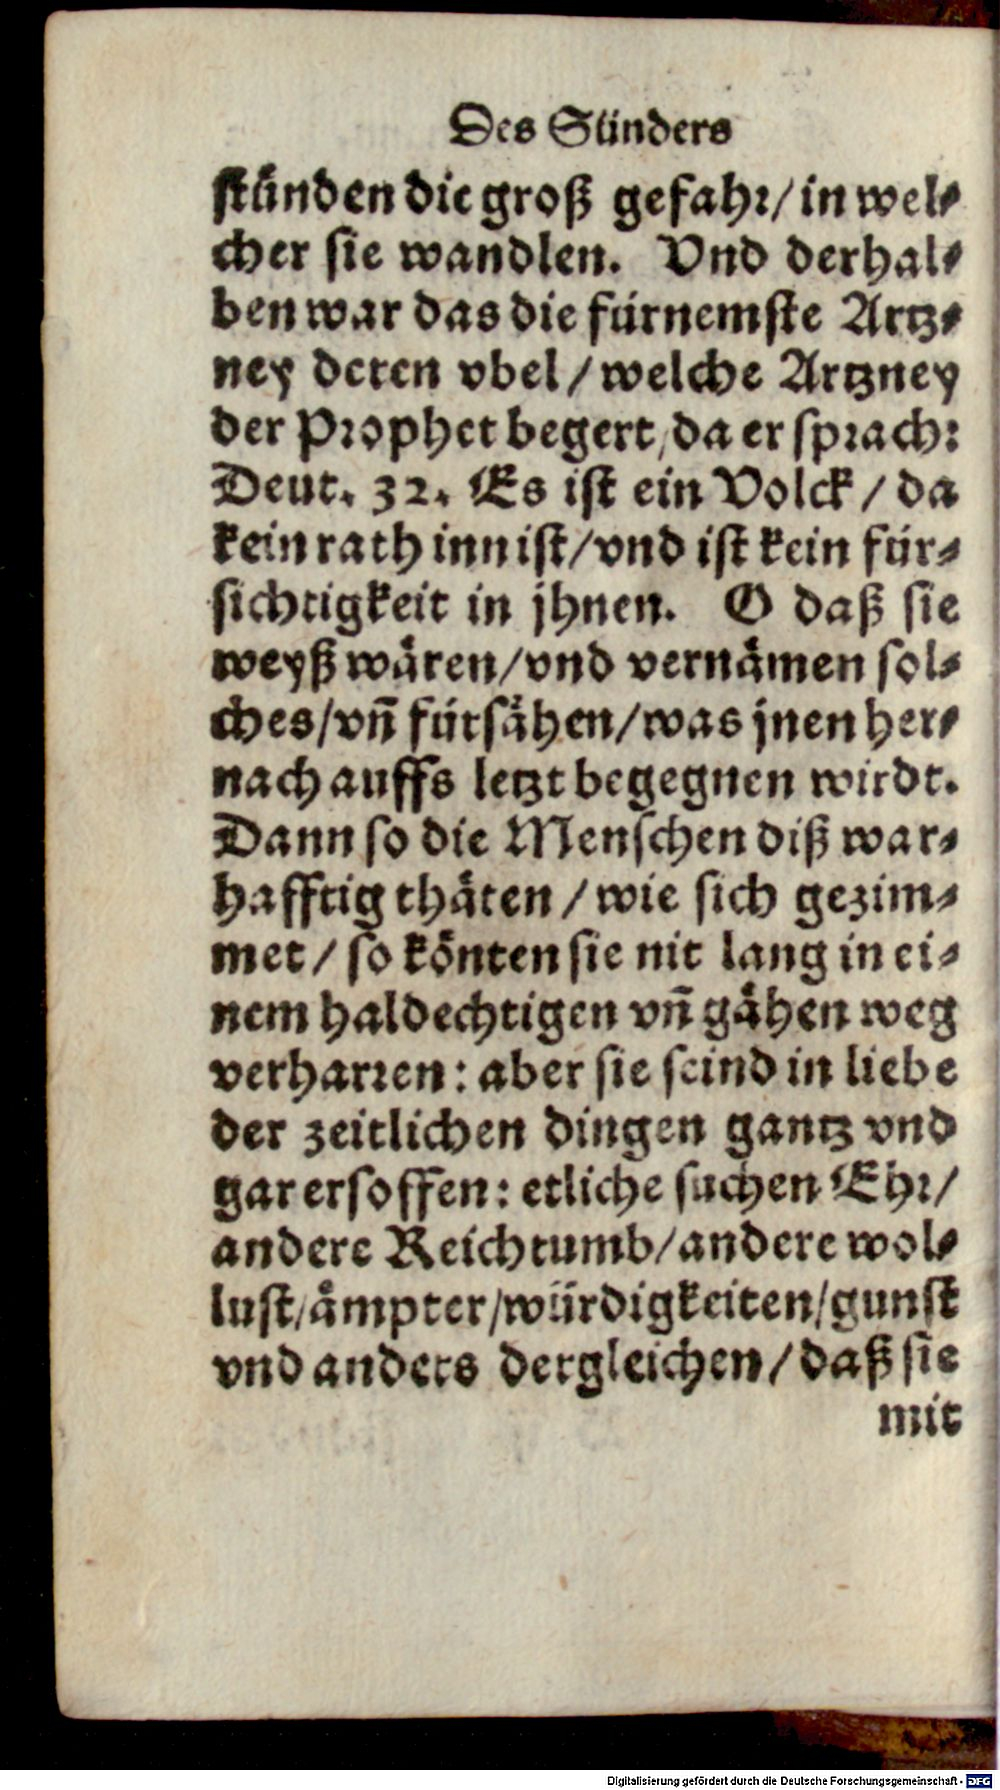 Des Sünders
stünden die groß gefahr/ in wel⸗
cher sie wandlen. Vnd derhal⸗
ben war das die fürnemste Artz⸗
ney deren vbel/ welche Artzney
der Prophet begert/ da er sprach:
Deut. 32. Es ist ein Volck/ da
kein rath inn ist/ vnd ist kein für⸗
sichtigkeit in jhnen. O daß sie
weyß wären/ vnd vernämen sol⸗
ches/ vñ fürsähen/ was jnen her⸗
nach auffs letzt begegnen wirdt.
Dann so die Menschen diß war⸗
hafftig thäten/ wie sich gezim⸗
met/ so könten sie nit lang in ei⸗
nem haldechtigen vñ gähen weg
verharren: aber sie seind in liebe
der zeitlichen dingen gantz vnd
gar ersoffen: etliche suchen Ehr/
andere Reichtumb/ andere wol⸗
lust/ ämpter/ würdigkeiten/ gunst
vnd anders dergleichen/ daß sie
mit
Digitalisierung gefördert durch die Deutsche Forschungsgemeinschaft - DFG